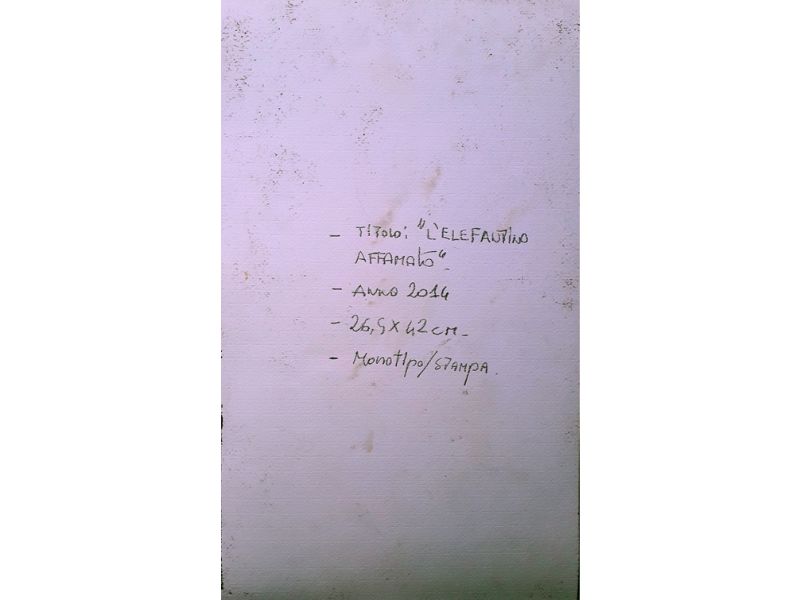 - TITOLO: "L'ELEFANTINO
AFFAMATO"
- ANNO 2014
- 26,5 X 42 cm.
- Monotipo/STAMPA